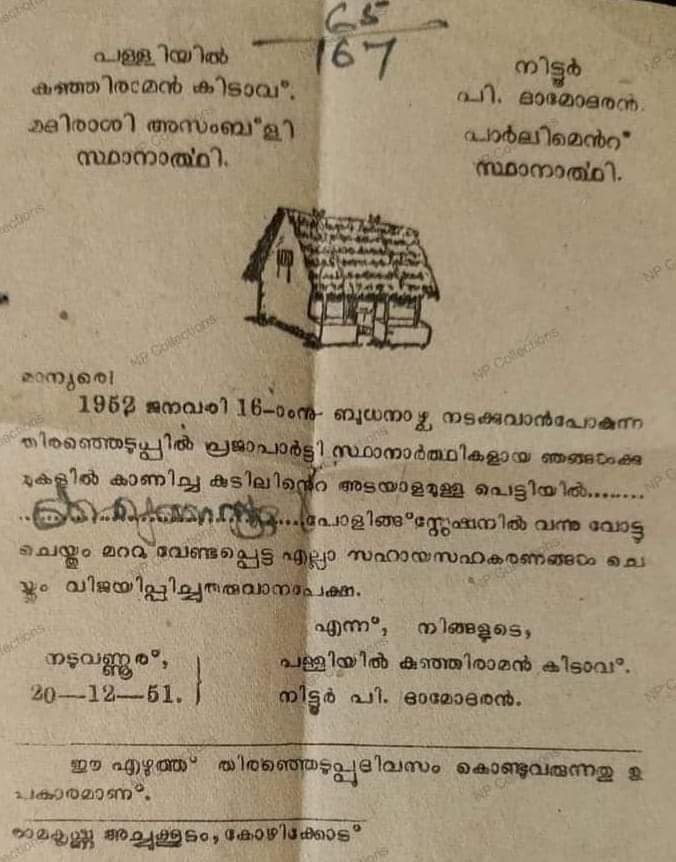 65
167
പള്ളിയിൽ
കുഞ്ഞിരാമൻ കിടാവ്.
മദിരാശി അസംബ്ളി
സ്ഥാനാൎത്ഥി.
നിട്ടൂർ
പി. ദാമോദരൻ.
പാർലിമെൻറ്
സ്ഥാനാൎത്ഥി.
മാന്യരെ!
1952 ജനവരി 16-ാംനു- ബുധനാഴ്ച നടക്കുവാൻപോകുന്ന
തിരഞ്ഞെടുപ്പിൽ പ്രജാപാർട്ടി സ്ഥാനാർത്ഥികളായ ഞങ്ങൾക്കു
മുകളിൽ കാണിച്ച കുടിലിൻ്റെ അടയാളമുള്ള പെട്ടിയിൽ........
....പോളിങ്ങ് സ്റ്റേഷനിൽ വന്നു വോട്ടു
ചെയ്തും മററു വേണ്ടപ്പെട്ട എല്ലാ സഹായസഹകരണങ്ങൾ ചെ
യ്തും വിജയിപ്പിച്ചുതരുവാനപേക്ഷ.
എന്ന്, നിങ്ങളുടെ,
നടുവണ്ണൂര്,
20—12—51.
പള്ളിയിൽ കുഞ്ഞിരാമൻ കിടാവ്.
നിട്ടൂർ പി. ദാമോദരൻ.
ഈ എഴുത്ത് തിരഞ്ഞെടുപ്പുദിവസം കൊണ്ടുവരുന്നതു ഉ
പകാരമാണ്.
രാമകൃഷ്ണ അച്ചുക്കൂടം, കോഴിക്കോട്
NP Collections